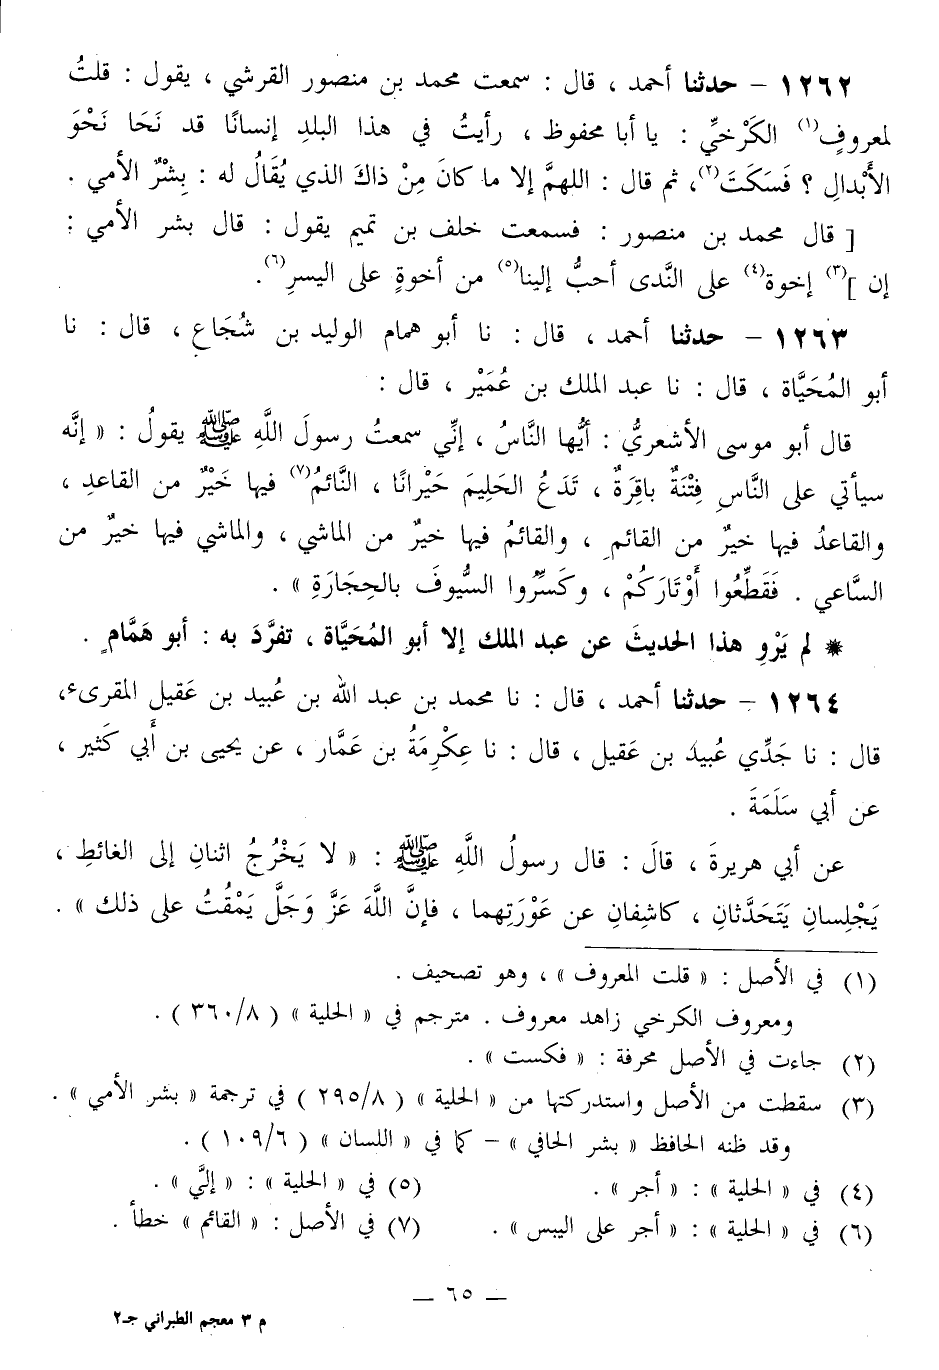 ١٢٦٢ – حدثنا أحمد ، قال : سمعت محمد بن منصور القرشي ، يقول : قلتُ
لمعروفٍ(١) الكَرْخيِّ : يا أبا محفوظ ، رأيتُ في هذا البلدِ إنسانًا قد نَحَا نَحْوَ
الأَبْدالِ ؟ فَسَكَتَ(٢)، ثم قال : اللهمَّ إلا ما كانَ مِنْ ذاكَ الذي يُقَالُ له : بِشْرٌ الأمي .
[ قال محمد بن منصور : فسمعت خلف بن تميم يقول : قال بشر الأمي :
إن ](٣) إخوة(٤) على النَّدى أحبُّ إلينا(٥) من أخوةٍ على اليسرِ(٦).
١٢٦٣ – حدثنا أحمد ، قال : نا أبو همام الوليد بن شُجَاع ، قال : نا
أبو المُحَيَّاة ، قال : نا عبد الملك بن عُمَيْر ، قال :
قال أبو موسى الأشعريُّ : أيُّها النَّاسُ ، إنِّي سمعتُ رسولَ اللَّهِ ﷺ يقولُ : « إنَّه
سيأتي على النَّاسِ فِتْنَةٌ باقِرَةٌ ، تَدَعُ الحَلِيمَ حَيْرانًا ، النَّائمُ(٧) فيها خَيْرٌ من القاعدِ ،
والقاعدُ فيها خيرٌ من القائمِ ، والقائمُ فيها خيرٌ من الماشي ، والماشي فيها خيرٌ من
السَّاعي . فَقَطِّعُوا أَوْتَارَكُمْ ، وكَسِّرُوا السُّيوفَ بالحِجَارَةِ » .
* لم يَرْوِ هذا الحديثَ عن عبد الملك إلا أبو المُحَيَّاة ، تفرَّدَ به : أبو هَمَّامٍ .
١٢٦٤ – حدثنا أحمد ، قال : نا محمد بن عبد الله بن عُبيد بن عَقيل المقرىء،
قال : نا جَدِّي عُبيد بن عَقيل ، قال : نا عِكْرِمَةُ بن عَمَّار ، عن يحيى بن أَبي كَثير ،
عن أبي سَلَمَةَ .
عن أبي هريرةَ ، قالَ : قال رسولُ اللَّهِ ﷺ : « لا يَخْرُجُ اثنانِ إلى الغائطِ ،
يَجْلِسانِ يَتَحَدَّثانِ ، كاشِفانِ عن عَوْرَتِهما ، فإنَّ اللَّهَ عَزَّ وَجَلَّ يَمْقُتُ على ذلك » .
(١) في الأصل : « قلت المعروف » ، وهو تصحيف .
ومعروف الكرخي زاهد معروف . مترجم في « الحلية » ( ٣٦٠/٨ ) .
(٢) جاءت في الأصل محرفة : « فكست » .
(٣) سقطت من الأصل واستدركتها من « الحلية » ( ٢٩٥/٨ ) في ترجمة « بشر الأمي » .
وقد ظنه الحافظ « بشر الحافي » – كما في « اللسان » ( ١٠٩/٦ ) .
(٤) في « الحلية » : « أجر » . (٥) في « الحلية » : « إليَّ » .
(٦) في « الحلية » : « أجر على اليبس » . (٧) في الأصل : « القائم » خطأ .
— ٦٥ —
م ٣ معجم الطبراني جـ٢